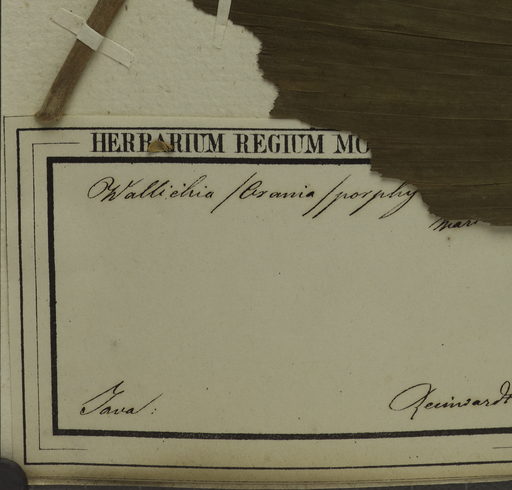 HERBARIUM REGIUM MO
Wallichia /Orania/ porphy
mar
Java:
Reinwardt